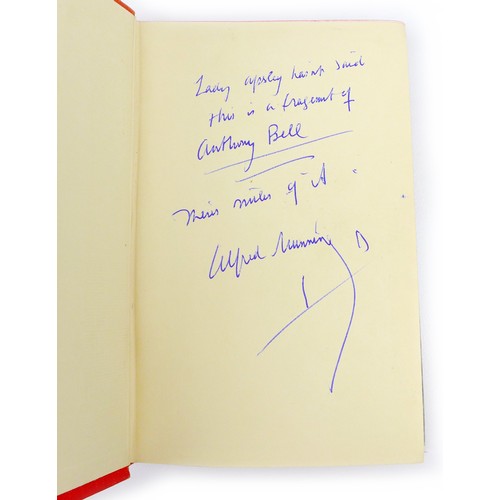 Lady Apsley hasnt said
this is a fragment of
Anthony Bell
Theres miles of it
Alfred Munnings